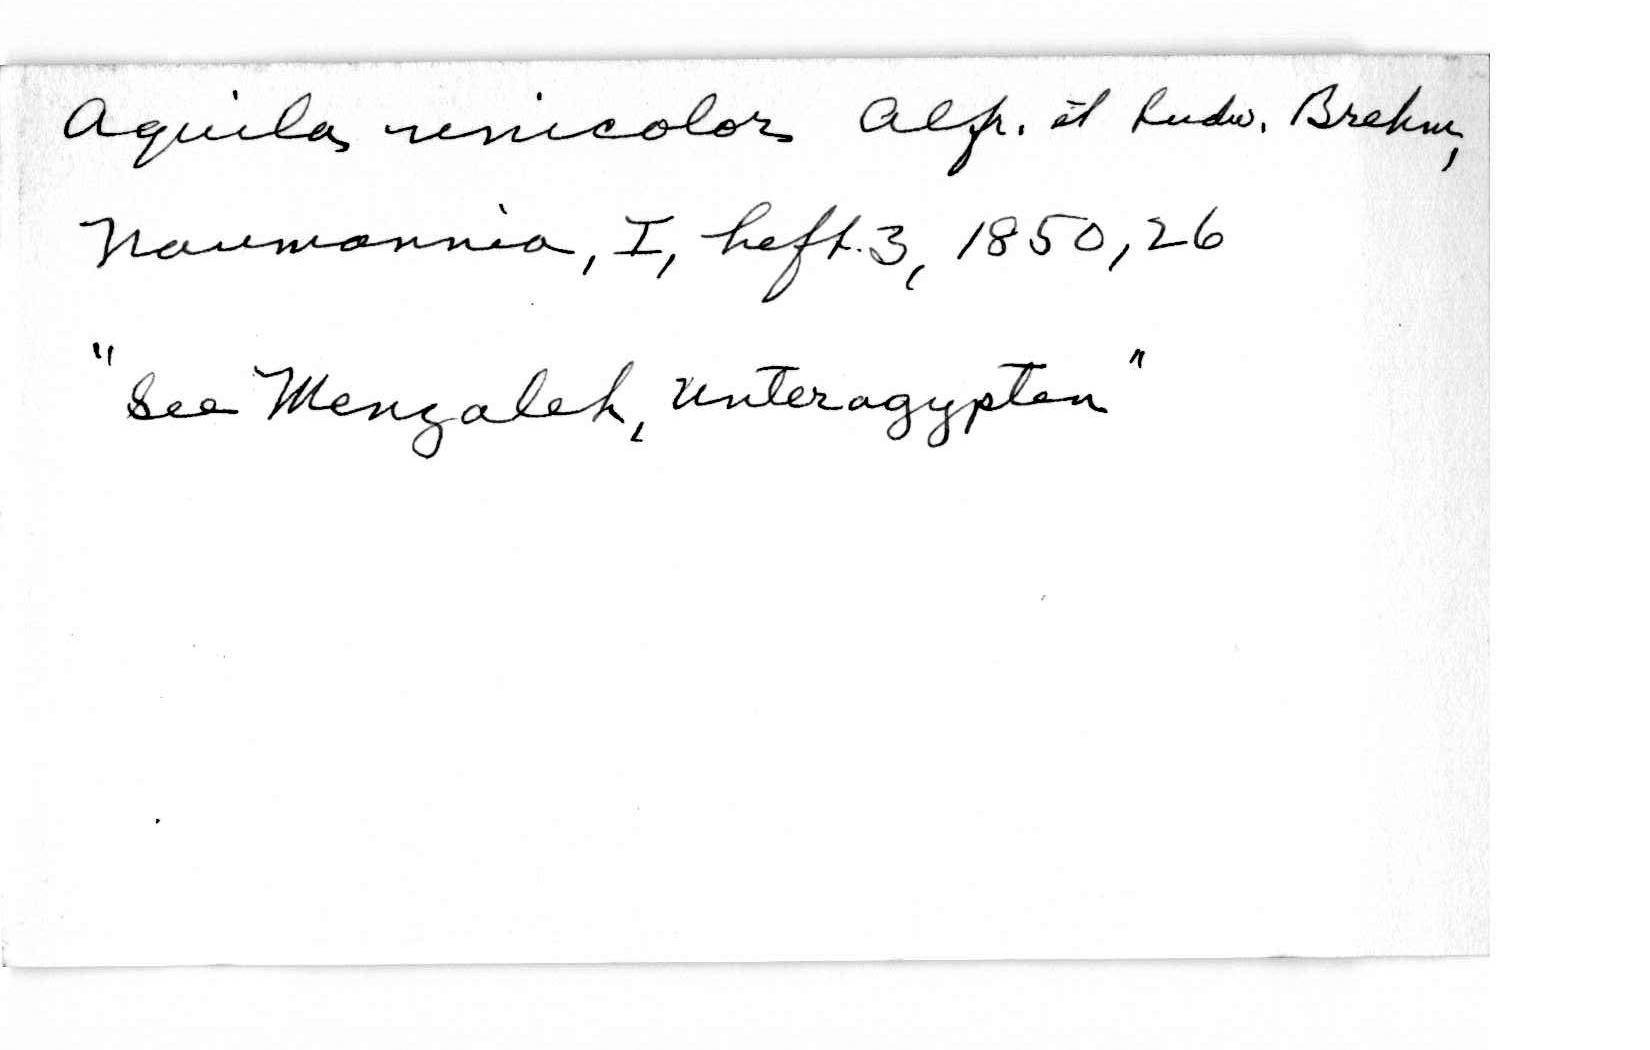 Aquila unicolor Alfr. et Ludw. Brehm,
Naumannia, I, heft. 3, 1850, 26
"See Menzaleh, Unteragypten"